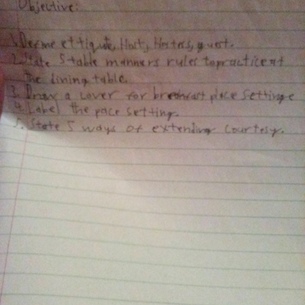 Objective:
1. Define ettiquite, Host, Hostess, guest.
2. State 5 table manners rules to practice at
the dining table.
3. Draw a cover for breakfast place setting
4. Label the pace setting.
5. State 5 ways of extending courtesy.